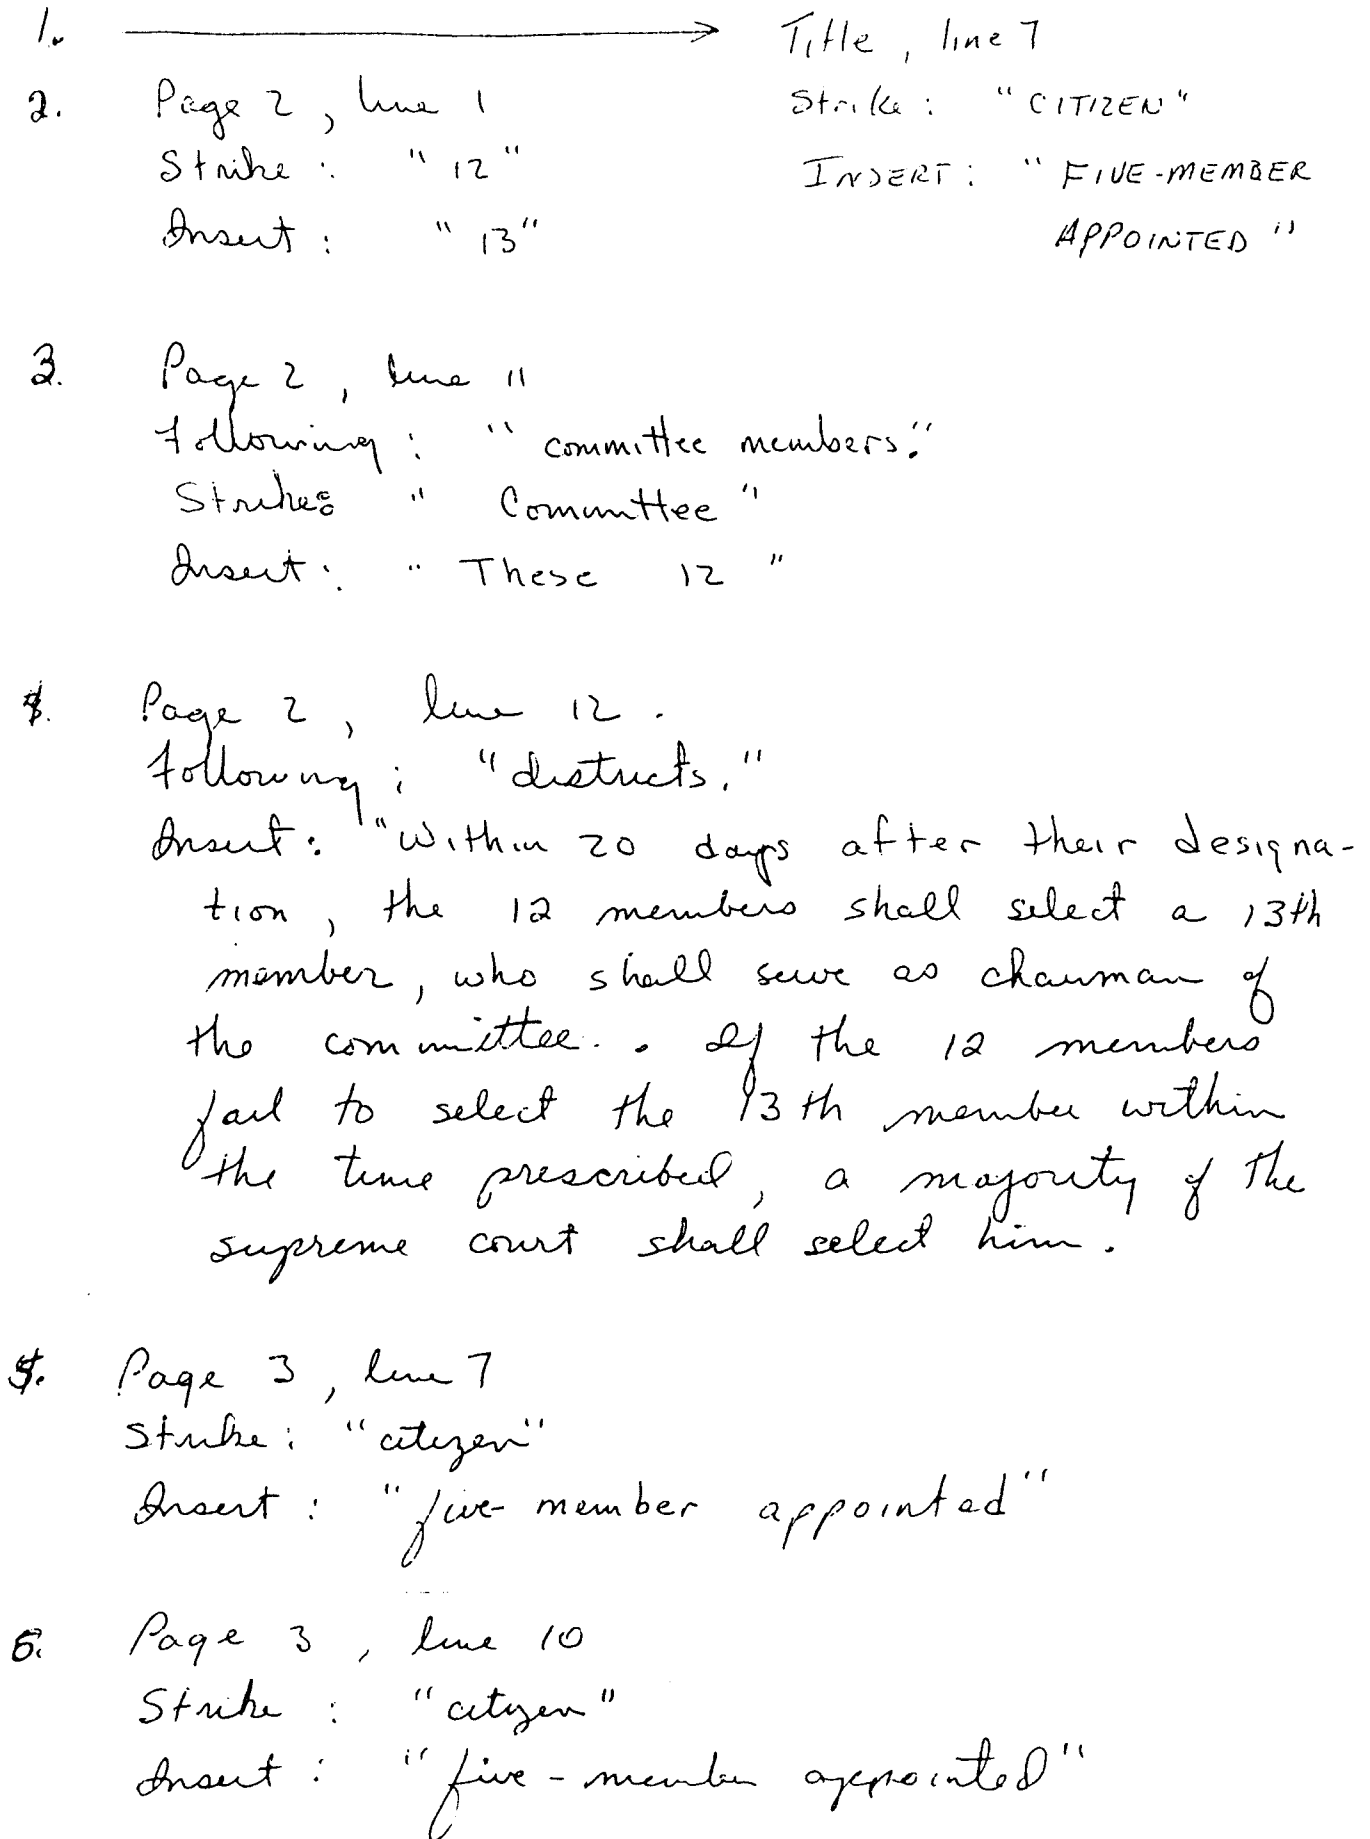 1. Title, line 7
Strike: "CITIZEN"
INSERT: "FIVE-MEMBER
APPOINTED"
2. Page 2, line 1
Strike: "12"
Insert: "13"
3. Page 2, line 11
Following: "committee members."
Strike: "Committee"
Insert: "These 12"
4. Page 2, line 12.
Following: "districts."
Insert: "Within 20 days after their designa-
tion, the 12 members shall select a 13th
member, who shall serve as chairman of
the committee. . If the 12 members
fail to select the 13th member within
the time prescribed, a majority of the
supreme court shall select him.
5. Page 3, line 7
Strike: "citizen"
Insert: "five-member appointed"
6. Page 3, line 10
Strike: "citizen"
Insert: "five-member appointed"